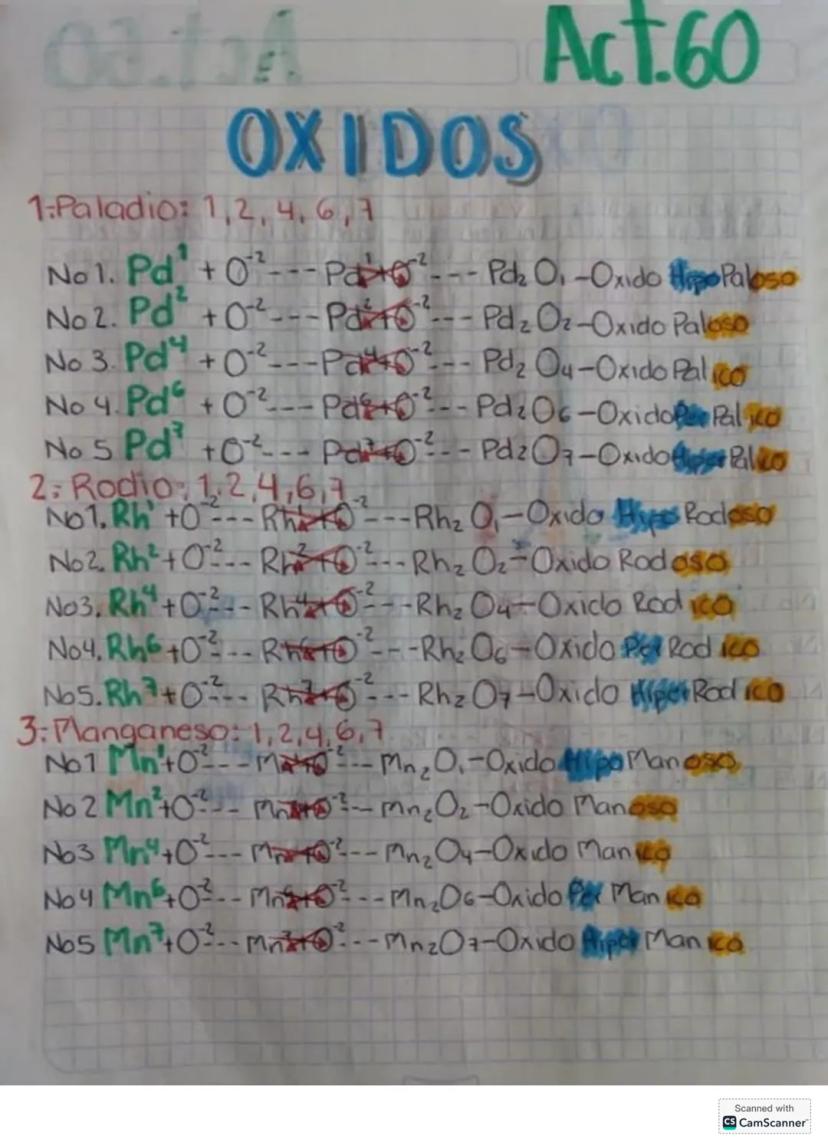 Act.60
OXIDOS
1:Paladio: 1, 2, 4, 6, 7
No 1. Pd¹ + O⁻²--- Pd¹+O⁻²--- Pd₂ O₁-Oxido HipoPaloso
No 2. Pd² + O⁻²--- Pd²+O⁻²--- Pd₂ O₂-Oxido Paloso
No 3 Pd⁴ + O⁻²--- Pd⁴+O⁻²--- Pd₂ O₄-Oxido Palico
No 4. Pd⁶ + O⁻²--- Pd⁶+O⁻²--- Pd₂O₆-Oxido Per Palico
No 5 Pd⁷ +O⁻²--- Pd⁷+O⁻²--- Pd₂O₇-Oxido HiperPalico
2: Rodio: 1, 2, 4, 6, 7
No1. Rh¹ +O⁻²--- Rh¹+O⁻²--- Rh₂ O₁-Oxido Hipo Rodoso
No2. Rh²+O⁻²--- Rh²+O⁻²--- Rh₂ O₂-Oxido Rodoso
No3. Rh⁴+O⁻²--- Rh⁴+O⁻²--- Rh₂ O₄-Oxido Rodico
No4. Rh⁶+O⁻²--- Rh⁶+O⁻²--- Rh₂ O₆-Oxido Per Rodico
No5. Rh⁷+O⁻²--- Rh⁷+O⁻²--- Rh₂ O₇-Oxido HiperRodico
3: Manganeso: 1, 2, 4, 6, 7
No1 Mn¹+O⁻²--- Mn+O⁻²--- Mn₂O₁-Oxido Hipo Manoso
No 2 Mn²+O⁻²--- Mn+O⁻²--- Mn₂O₂-Oxido Manoso
No3 Mn⁴+O⁻²--- Mn+O⁻²--- Mn₂O₄-Oxido Manico
No4 Mn⁶+O⁻²--- Mn⁶+O⁻²--- Mn₂O₆-Oxido Per Manico
No5 Mn⁷+O⁻²--- Mn⁷+O⁻²--- Mn₂O₇-Oxido Hiper Manico
Scanned with
CS CamScanner